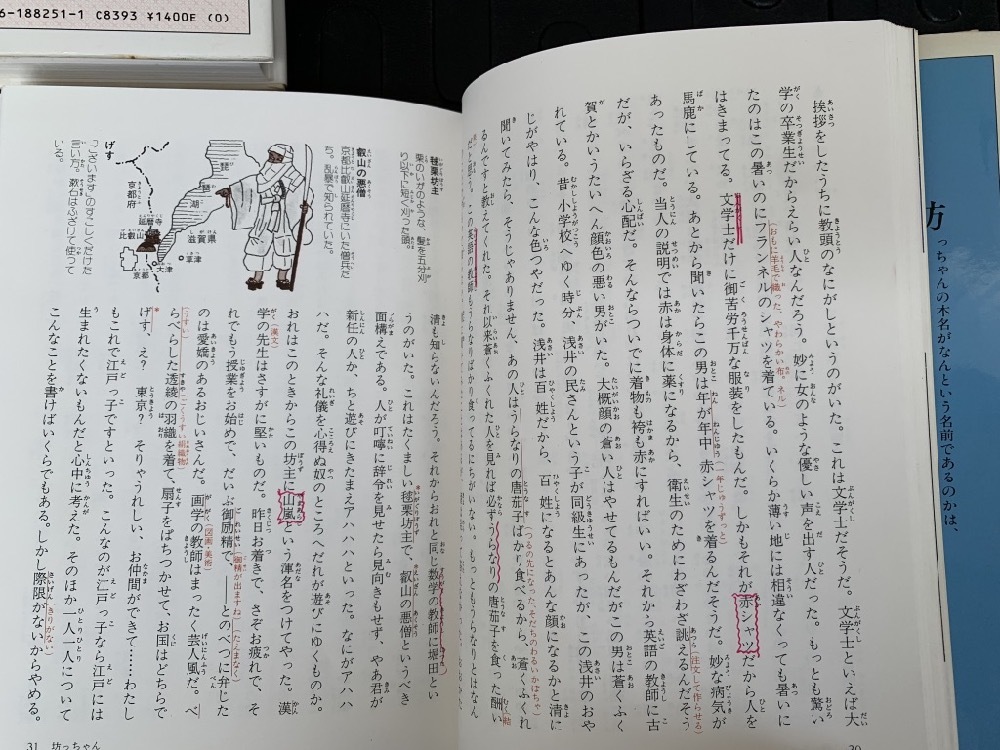 6-188251-1 C8393 ¥1400E (0)
挨拶をしたうちに教頭のなにがしというのがいた。これは文学士だそうだ。文学士といえば大
学の卒業生だからえらい人なんだろう。妙に女のような優しい声を出す人だった。もっとも驚い
たのはこの暑いのにフランネルのシャツを着ている。いくらか薄い地には相違なくっても暑いに
(おもに羊毛で織った、やわらかい布。ネル)
はきまってる。文学士だけに御苦労千万な服装をしたもんだ。しかもそれが赤シャツだから人を
馬鹿にしている。あとから聞いたらこの男は年が年中赤シャツを着るんだそうだ。妙な病気が
(一年じゅうずっと)
あったものだ。当人の説明では赤は身体に薬になるから、衛生のためにわざわざ誂えるんだそう
(注文して作らせる)
だが、いらざる心配だ。そんならついでに着物も袴も赤にすればいい。それから英語の教師に古
賀とかいうたいへん顔色の悪い男がいた。大概顔の蒼い人はやせてるもんだがこの男は蒼くふく
れている。昔小学校へゆく時分、浅井の民さんという子が同級生にあったが、この浅井のおや
じがやはり、こんな色つやだった。浅井は百姓だから、百姓になるとあんな顔になるかと清に
聞いてみたら、そうじゃありません、あの人はうらなりの唐茄子ばかり食べるから、蒼くふくれ
(つるの先になった、そだちのわるいかぼちゃ)
るんですと教えてくれた。それ以来蒼くふくれた人を見れば必ずうらなりの唐茄子を食った酬い
だと思う。この英語の教師もうらなりばかり食ってるにちがいない。もっともうらなりとはなん
30
毬栗坊主
栗のいがのような、髪を五分刈
り以下に短く刈った頭。
叡山の悪僧
京都比叡山延暦寺にいた僧兵た
ち。乱暴で知られていた。
琵
琶
湖
滋賀県
草津
大津
京都
延暦寺
比叡山
京都府
げす
「ございます」のすこしくだけた
言い方。漱石はふざけて使って
いる。
の事も知らないんだろう。それからおれと同じ数学の教師に堀田とい
うのがいた。これはたくましい毬栗坊主で、叡山の悪僧というべき
面構えである。人が叮嚀に辞令を見せたら見向きもせず、やあ君が
新任の人か、ちと遊びにきたまえアハハハといった。なにがアハハ
ハだ。そんな礼儀を心得ぬ奴のところへだれが遊びにゆくものか。
おれはこのときからこの坊主に山嵐という渾名をつけてやった。漢
学の先生はさすがに堅いものだ。昨日お着きで、さぞお疲れで、そ
(漢文)
れでもう授業をお始めで、だいぶ御励精で、――とのべつに弁じた
(御精が出ますね)
(たんまなく)
のは愛嬌のあるおじいさんだ。画学の教師はまったく芸人風だ。べ
(図画・美術)
らべらした透綾の羽織を着て、扇子をぱちつかせて、お国はどちらで
(ごくうすい絹織物)
げす、え? 東京? そりゃうれしい、お仲間ができて……わたし
もこれで江戸っ子ですといった。こんなのが江戸っ子なら江戸には
生まれたくないもんだと心中に考えた。そのほか一人一人について
こんなことを書けばいくらでもある。しかし際限がないからやめる。
(きりがない)
31 坊っちゃん
坊
っちゃんの本名がなんという名前であるのかは、